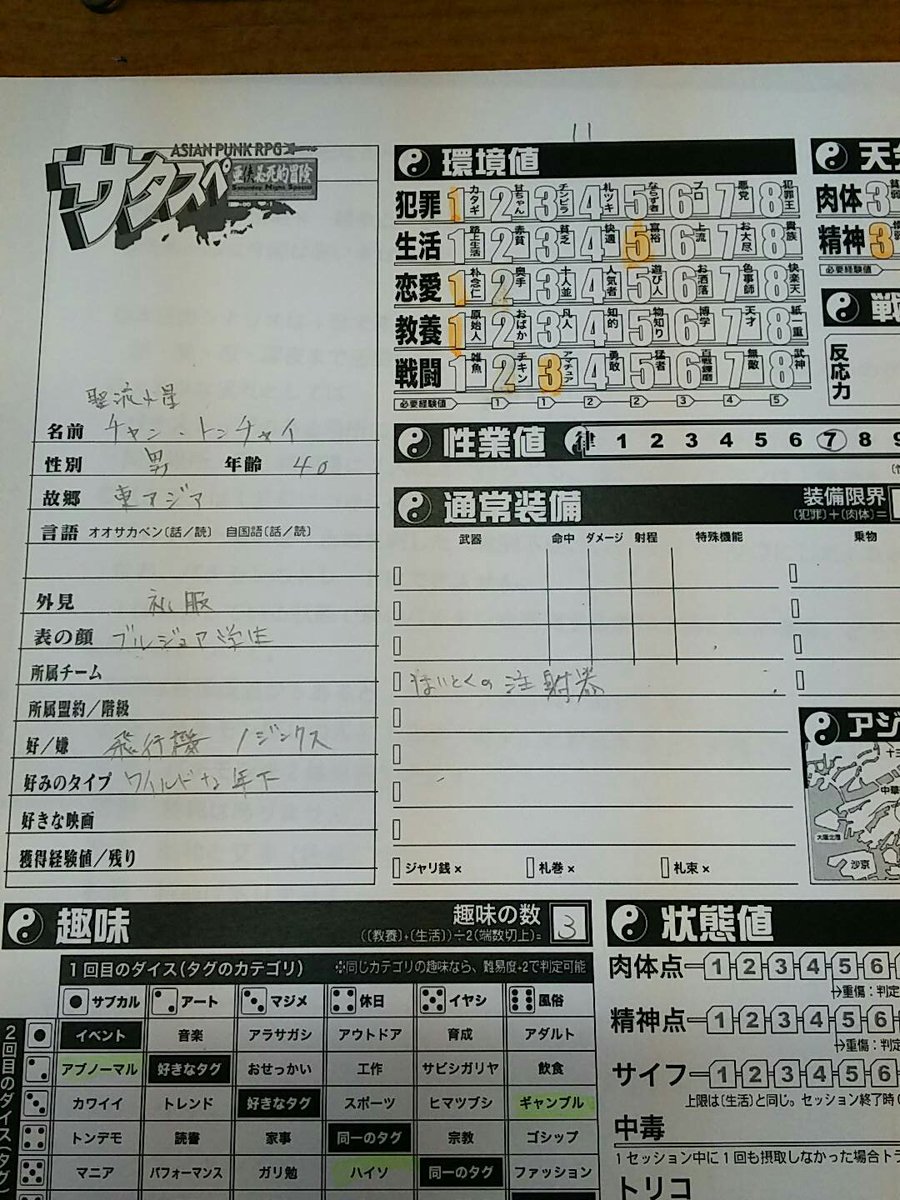 ASIAN PUNK RPG
サタスペ
亜侠必死的冒険
Saturday Night Special
名前 チャン・トンチャイ
性別 男 年齢 40
故郷 東アジア
言語 オオサカベン〔話／読〕 自国語〔話／読〕
外見 礼服
表の顔 ブルジョア学生
所属チーム
所属盟約／階級
好／嫌 飛行機 / ジンクス
好みのタイプ ワイルドな年下
好きな映画
獲得経験値／残り
11
環境値
犯罪 1 カタギ 2 甘ちゃん 3 チンピラ 4 札ツキ 5 ならず者 6 プロ 7 悪党 8 犯罪王
生活 1 路上生活 2 赤貧 3 貧乏 4 快適 5 富裕 6 上流 7 お大尽 8 貴族
恋愛 1 朴念仁 2 奥手 3 十人並 4 人気者 5 遊び人 6 お洒落 7 色事師 8 快楽天
教養 1 原始人 2 おばか 3 凡人 4 知的 5 物知り 6 博学 7 天才 8 紙一重
戦闘 1 雑魚 2 チキン 3 アマチュア 4 勇敢 5 猛者 6 百戦錬磨 7 無敵 8 武神
必要経験値 1 1 2 2 3 4 5
性業値 律 1 2 3 4 5 6 7 8 9
通常装備 装備限界
〔犯罪〕+〔肉体〕=
武器 命中 ダメージ 射程 特殊機能 乗物
はいとくの注射器
ジャリ銭× 札巻× 札束×
肉体 3
精神 3
必要経験値
反応力
アジ
中華
大阪北港
沙京
趣味 趣味の数
(〔教養〕+〔生活〕)÷2(端数切上)= 3
1回目のダイス(タグのカテゴリ) ※同じカテゴリの趣味なら、難易度+2で判定可能
サブカル アート マジメ 休日 イヤシ 風俗
2回目のダイス(タグ
イベント 音楽 アラサガシ アウトドア 育成 アダルト
アブノーマル 好きなタグ おせっかい 工作 サビシガリヤ 飲食
カワイイ トレンド 好きなタグ スポーツ ヒマツブシ ギャンブル
トンデモ 読書 家事 同一のタグ 宗教 ゴシップ
マニア パフォーマンス ガリ勉 ハイソ 同一のタグ ファッション
状態値
肉体点 1 2 3 4 5 6
→重傷：判定
精神点 1 2 3 4 5 6
→重傷：判定
サイフ 1 2 3 4 5 6
上限は〔生活〕と同じ。セッション終了時
中毒
1セッション中に1回も摂取しなかった場合トラ
トリコ